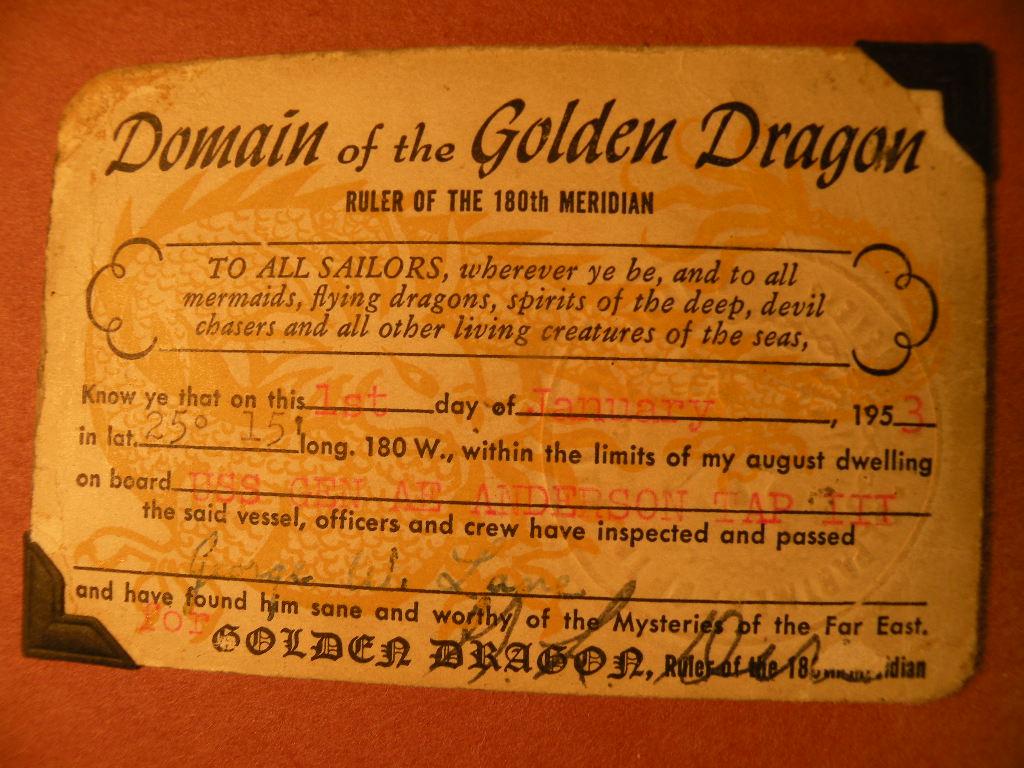 Domain of the Golden Dragon
RULER OF THE 180th MERIDIAN
TO ALL SAILORS, wherever ye be, and to all
mermaids, flying dragons, spirits of the deep, devil
chasers and all other living creatures of the seas,
Know ye that on this 1st day of January, 1953
in lat. 25° 15' long. 180 W., within the limits of my august dwelling
on board USS GEN AE ANDERSON TAP III
the said vessel, officers and crew have inspected and passed
George W. Lane
and have found him sane and worthy of the Mysteries of the Far East.
For GOLDEN DRAGON, Ruler of the 180th Meridian